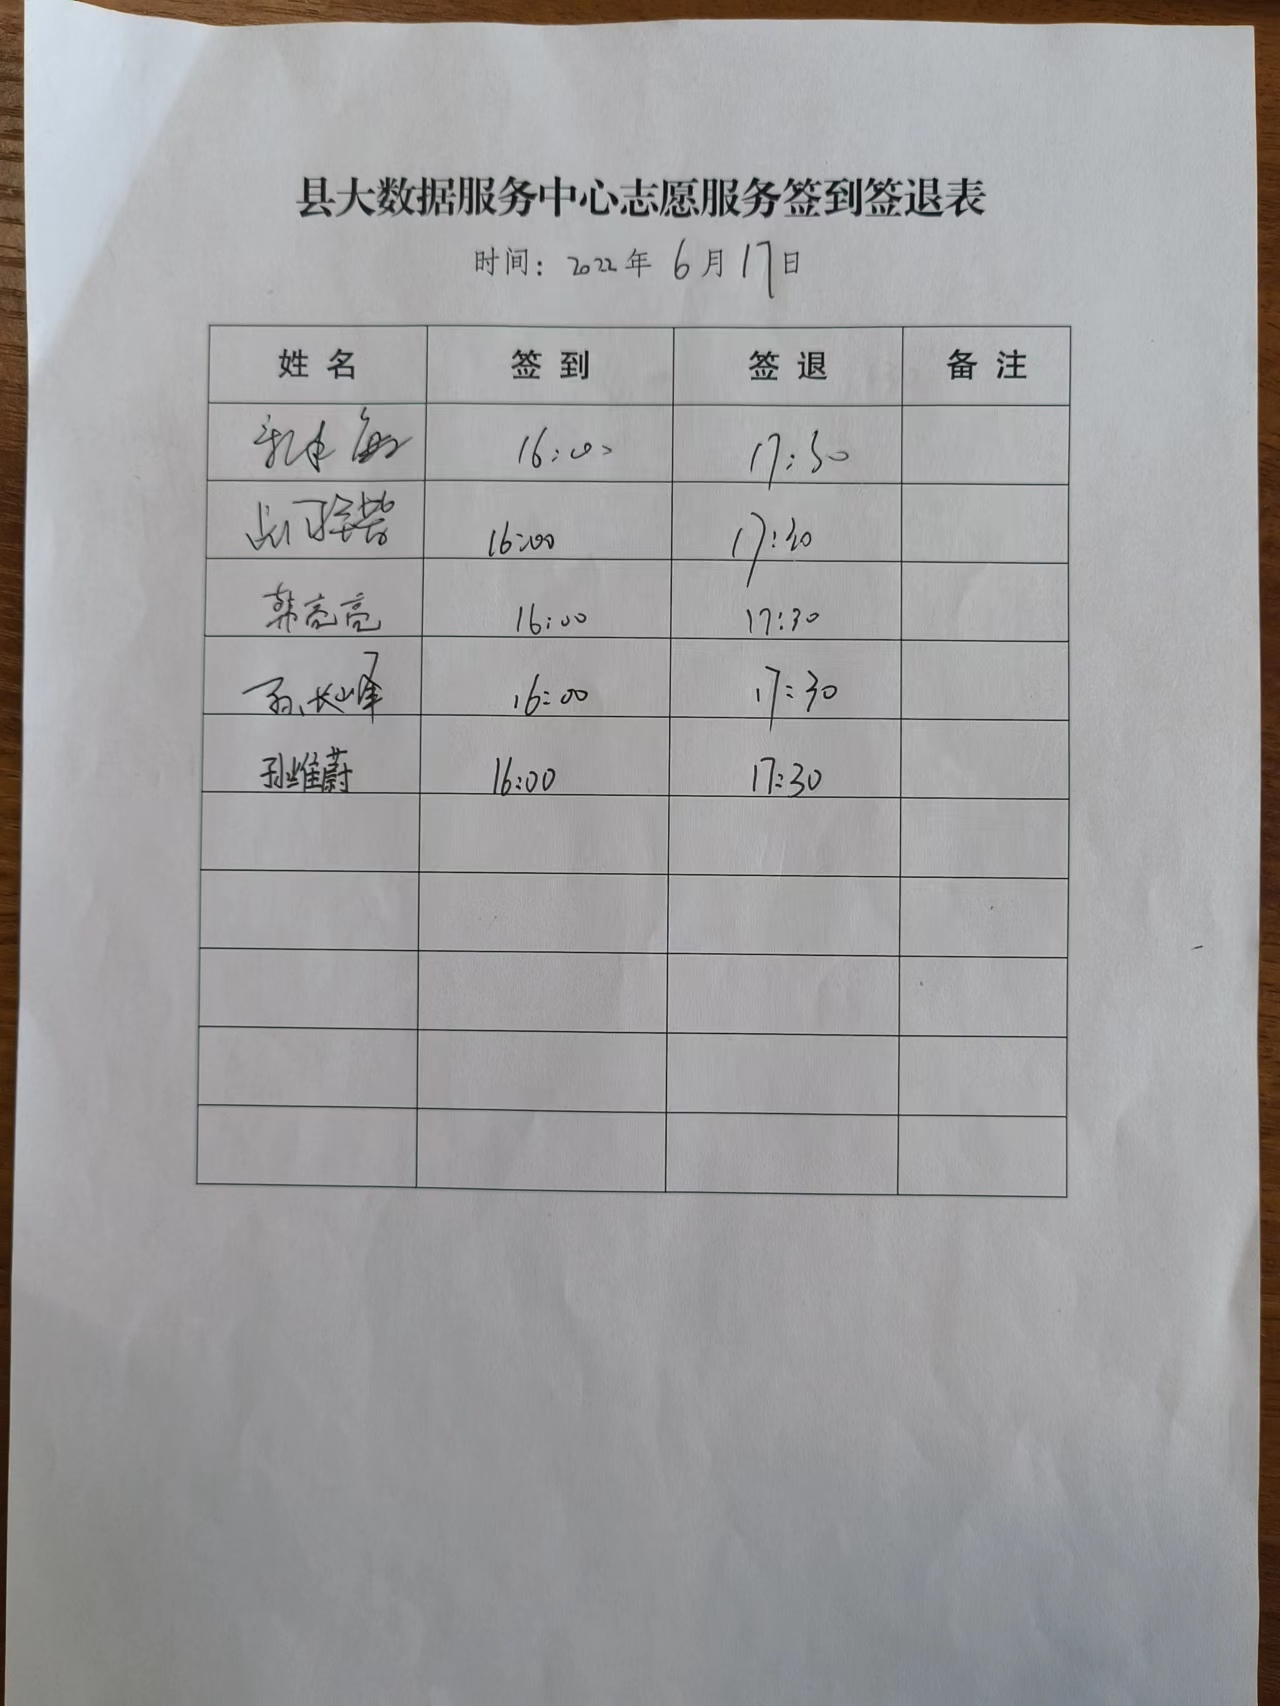 县大数据服务中心志愿服务签到签退表
时间：2022年 6月17日
姓名 签到 签退 备注
16:00 17:30
16:00 17:30
韩亮亮 16:00 17:30
孙长峰 16:00 17:30
孙维蔚 16:00 17:30